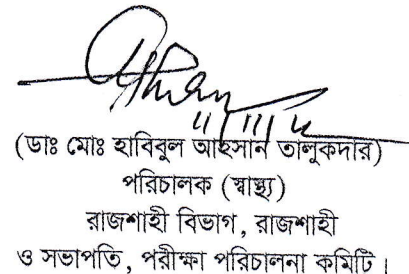 (ডাঃ মোঃ হাবিবুল আহসান তালুকদার)
পরিচালক (স্বাস্থ্য)
রাজশাহী বিভাগ, রাজশাহী
ও সভাপতি, পরীক্ষা পরিচালনা কমিটি।